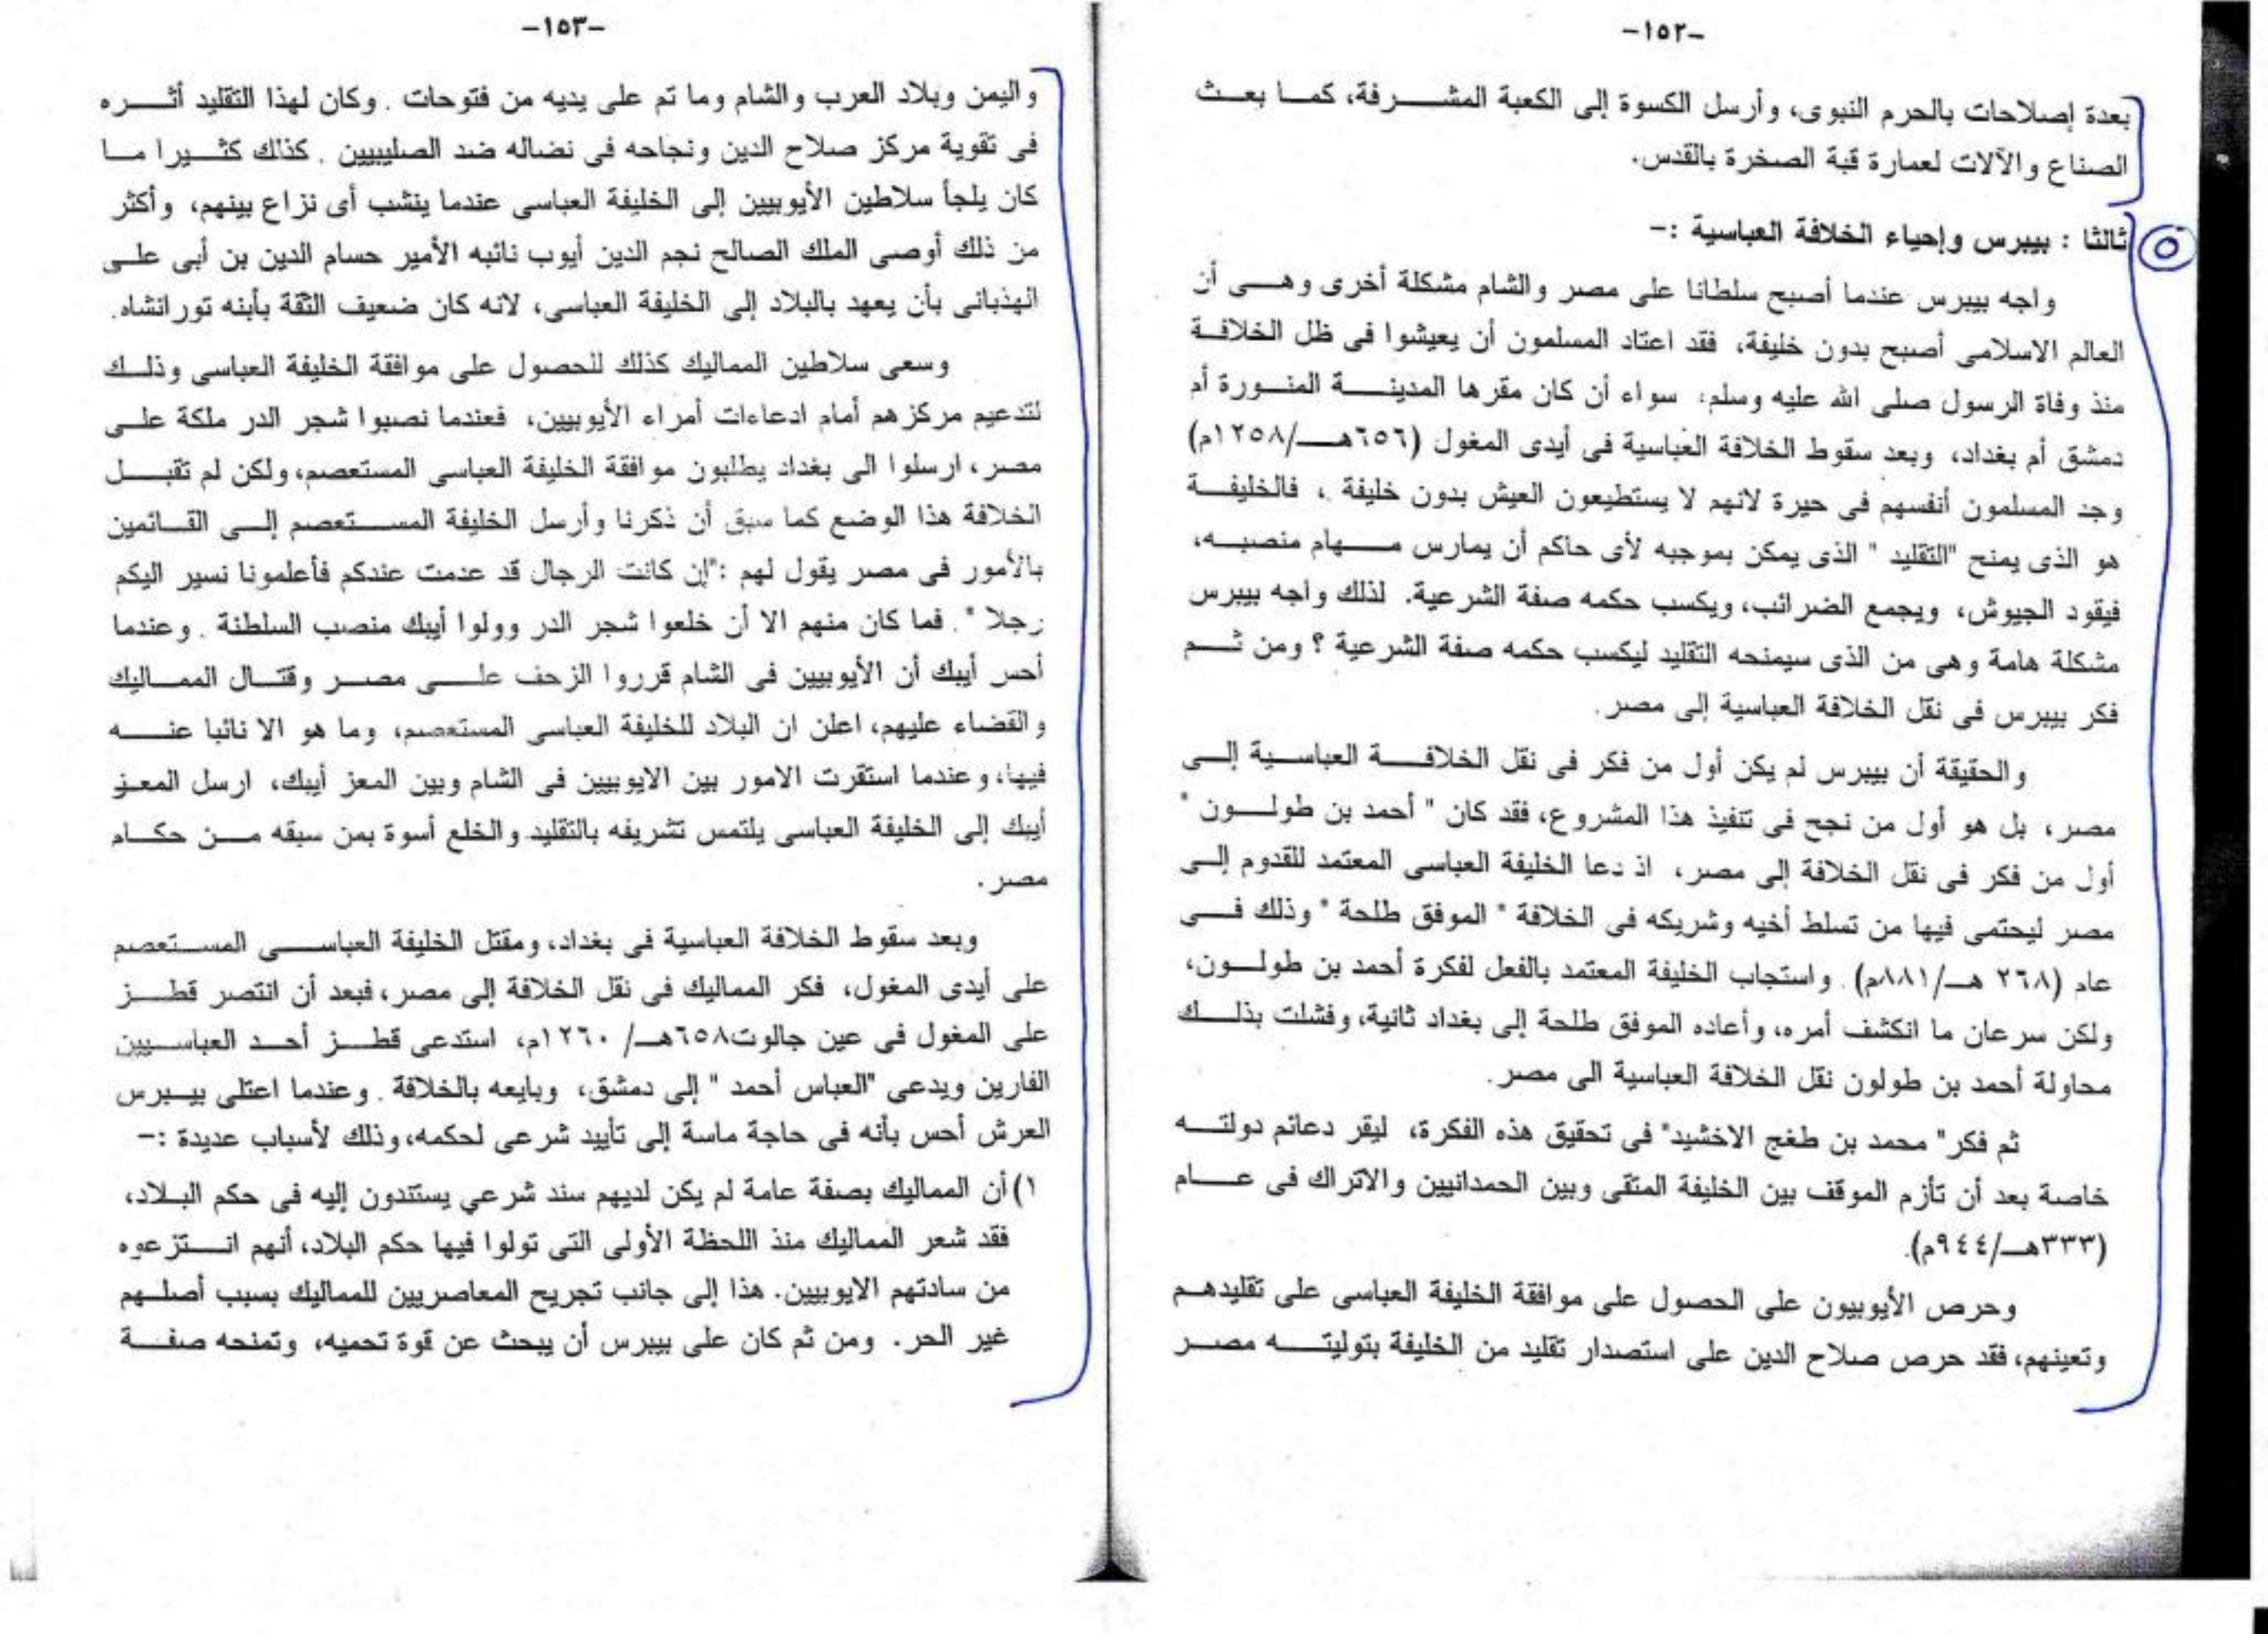 -١٥٢-
بعدة إصلاحات بالحرم النبوى، وأرسل الكسوة إلى الكعبة المشرفة، كما بعث
الصناع والآلات لعمارة قبة الصخرة بالقدس.
ثالثا : بيبرس وإحياء الخلافة العباسية :-
٥
واجه بيبرس عندما أصبح سلطانا على مصر والشام مشكلة أخرى وهى أن
العالم الاسلامى أصبح بدون خليفة، فقد اعتاد المسلمون أن يعيشوا فى ظل الخلافة
منذ وفاة الرسول صلى الله عليه وسلم، سواء أن كان مقرها المدينة المنورة أم
دمشق أم بغداد، وبعد سقوط الخلافة العباسية فى أيدى المغول (٦٥٦هـ/١٢٥٨م)
وجد المسلمون أنفسهم فى حيرة لانهم لا يستطيعون العيش بدون خليفة ، فالخليفة
هو الذى يمنح "التقليد " الذى يمكن بموجبه لأى حاكم أن يمارس مهام منصبه،
فيقود الجيوش، ويجمع الضرائب، ويكسب حكمه صفة الشرعية. لذلك واجه بيبرس
مشكلة هامة وهى من الذى سيمنحه التقليد ليكسب حكمه صفة الشرعية ؟ ومن ثم
فكر بيبرس فى نقل الخلافة العباسية إلى مصر.
والحقيقة أن بيبرس لم يكن أول من فكر فى نقل الخلافة العباسية إلى
مصر، بل هو أول من نجح فى تنفيذ هذا المشروع، فقد كان " أحمد بن طولون "
أول من فكر فى نقل الخلافة إلى مصر، اذ دعا الخليفة العباسى المعتمد للقدوم إلى
مصر ليحتمى فيها من تسلط أخيه وشريكه فى الخلافة " الموفق طلحة " وذلك فى
عام (٢٦٨ هـ/٨٨١م). واستجاب الخليفة المعتمد بالفعل لفكرة أحمد بن طولون،
ولكن سرعان ما انكشف أمره، وأعاده الموفق طلحة إلى بغداد ثانية، وفشلت بذلك
محاولة أحمد بن طولون نقل الخلافة العباسية الى مصر.
ثم فكر " محمد بن طغج الاخشيد" فى تحقيق هذه الفكرة، ليقر دعائم دولته
خاصة بعد أن تأزم الموقف بين الخليفة المتقى وبين الحمدانيين والاتراك فى عام
(٣٣٣هـ/٩٤٤م).
وحرص الأيوبيون على الحصول على موافقة الخليفة العباسى على تقليدهم
وتعينهم، فقد حرص صلاح الدين على استصدار تقليد من الخليفة بتوليته مصر
-١٥٣-
واليمن وبلاد العرب والشام وما تم على يديه من فتوحات . وكان لهذا التقليد أثره
فى تقوية مركز صلاح الدين ونجاحه فى نضاله ضد الصليبيين . كذلك كثيرا ما
كان يلجأ سلاطين الأيوبيين إلى الخليفة العباسى عندما ينشب أى نزاع بينهم، وأكثر
من ذلك أوصى الملك الصالح نجم الدين أيوب نائبه الأمير حسام الدين بن أبى على
الهذبانى بأن يعهد بالبلاد إلى الخليفة العباسى، لانه كان ضعيف الثقة بأبنه تورانشاه.
وسعى سلاطين المماليك كذلك للحصول على موافقة الخليفة العباسى وذلك
لتدعيم مركزهم أمام ادعاءات أمراء الأيوبيين، فعندما نصبوا شجر الدر ملكة على
مصر، ارسلوا الى بغداد يطلبون موافقة الخليفة العباسى المستعصم، ولكن لم تقبل
الخلافة هذا الوضع كما سبق أن ذكرنا وأرسل الخليفة المستعصم إلى القائمين
بالأمور فى مصر يقول لهم :"إن كانت الرجال قد عدمت عندكم فأعلمونا نسير اليكم
رجلا ". فما كان منهم الا أن خلعوا شجر الدر وولوا أيبك منصب السلطنة . وعندما
أحس أيبك أن الأيوبيين فى الشام قرروا الزحف على مصر وقتال المماليك
والقضاء عليهم، اعلن ان البلاد للخليفة العباسى المستعصم، وما هو الا نائبا عنه
فيها، وعندما استقرت الامور بين الايوبيين فى الشام وبين المعز أيبك، ارسل المعز
أيبك إلى الخليفة العباسى يلتمس تشريفه بالتقليد والخلع أسوة بمن سبقه من حكام
مصر.
وبعد سقوط الخلافة العباسية فى بغداد، ومقتل الخليفة العباسى المستعصم
على أيدى المغول، فكر المماليك فى نقل الخلافة إلى مصر، فبعد أن انتصر قطز
على المغول فى عين جالوت٦٥٨هـ/ ١٢٦٠م، استدعى قطز أحد العباسيين
الفارين ويدعى "العباس أحمد " إلى دمشق، وبايعه بالخلافة . وعندما اعتلى بيبرس
العرش أحس بأنه فى حاجة ماسة إلى تأييد شرعى لحكمه، وذلك لأسباب عديدة :-
١) أن المماليك بصفة عامة لم يكن لديهم سند شرعي يستندون إليه فى حكم البلاد،
فقد شعر المماليك منذ اللحظة الأولى التى تولوا فيها حكم البلاد، أنهم انتزعوه
من سادتهم الايوبيين. هذا إلى جانب تجريح المعاصريين للمماليك بسبب أصلهم
غير الحر. ومن ثم كان على بيبرس أن يبحث عن قوة تحميه، وتمنحه صفة